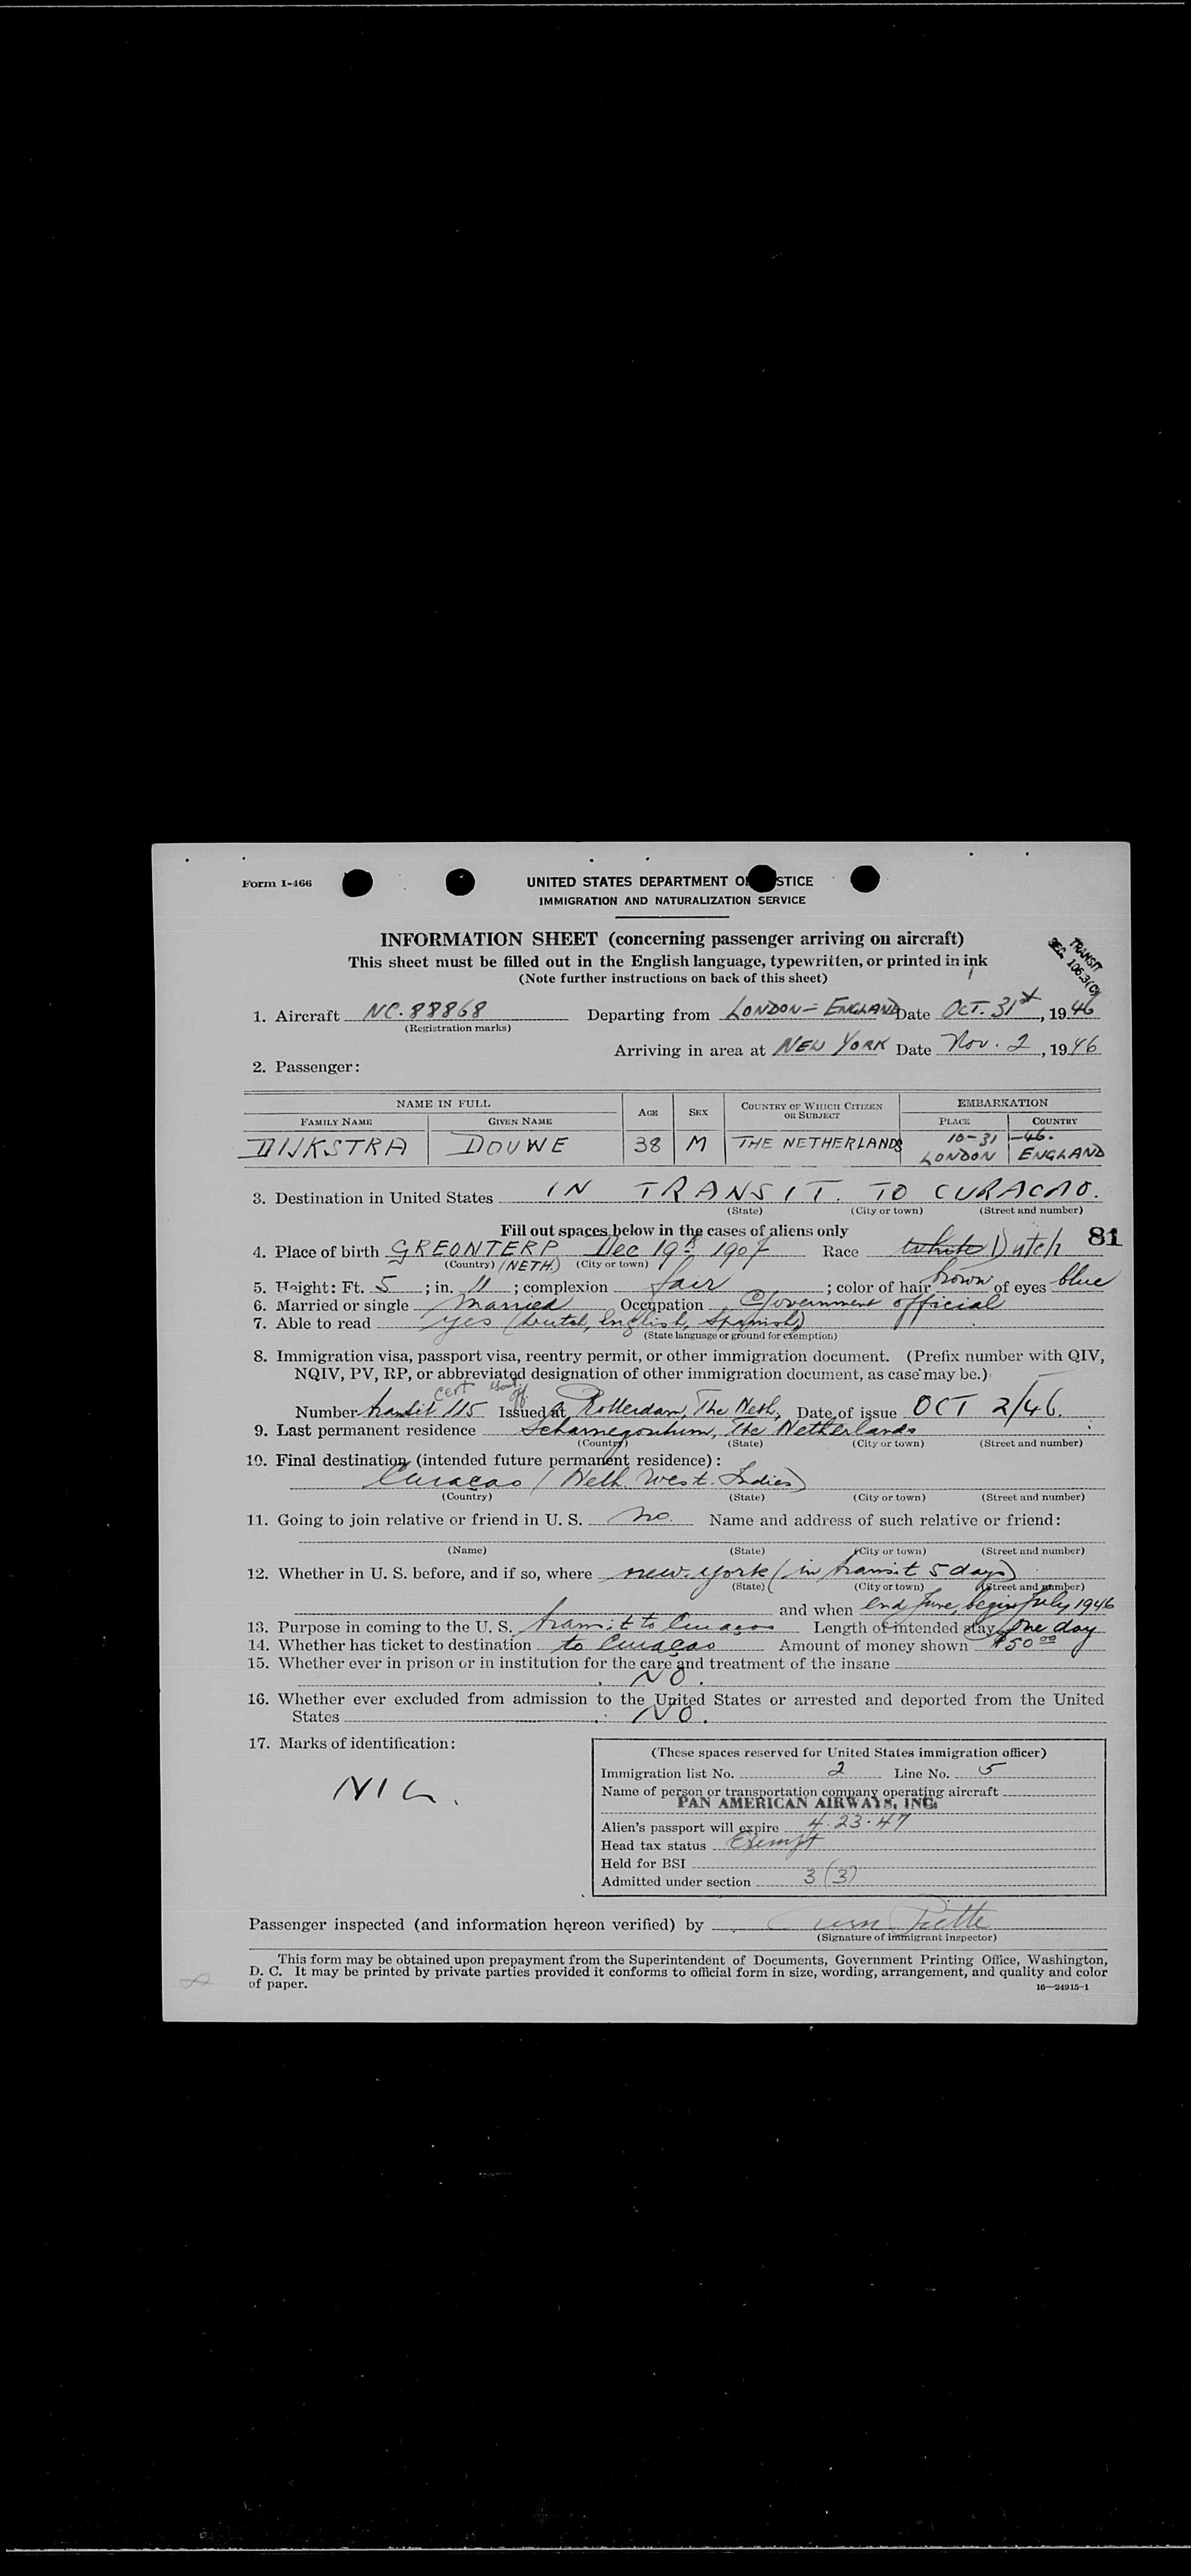 Form I-466
UNITED STATES DEPARTMENT O STICE
IMMIGRATION AND NATURALIZATION SERVICE
INFORMATION SHEET (concerning passenger arriving on aircraft)
This sheet must be filled out in the English language, typewritten, or printed in ink
(Note further instructions on back of this sheet)
TRANSIT
SEC. 106.3(C)
1. Aircraft NC.88868 Departing from LONDON - ENGLAND Date OCT. 31st, 1946
(Registration marks)
Arriving in area at NEW YORK Date Nov. 2, 1946
2. Passenger:
NAME IN FULL AGE SEX COUNTRY OF WHICH CITIZEN OR SUBJECT EMBARKATION
FAMILY NAME GIVEN NAME PLACE COUNTRY
10-31-46.
DIJKSTRA DOUWE 38 M THE NETHERLANDS LONDON ENGLAND
3. Destination in United States IN TRANSIT. TO CURACAO.
(State) (City or town) (Street and number)
Fill out spaces below in the cases of aliens only
81
4. Place of birth GREONTERP Dec 19th 1907 Race White Dutch
(Country) (NETH.) (City or town)
5. Height: Ft. 5; in. 11; complexion fair; color of hair brown of eyes blue
6. Married or single Married Occupation Government official
7. Able to read yes (Dutch, English, Spanish)
(State language or ground for exemption)
8. Immigration visa, passport visa, reentry permit, or other immigration document. (Prefix number with QIV,
NQIV, PV, RP, or abbreviated designation of other immigration document, as case may be.)
cert
Number transit 115 Issued at Rotterdam, The Neth, Date of issue OCT 2/46.
9. Last permanent residence Scharnegoutum, The Netherlands
(Country) (State) (City or town) (Street and number)
10. Final destination (intended future permanent residence):
Curaçao (Neth. West. Indies)
(Country) (State) (City or town) (Street and number)
11. Going to join relative or friend in U. S. no. Name and address of such relative or friend:
(Name) (State) (City or town) (Street and number)
12. Whether in U. S. before, and if so, where new-york (in transit 5 days)
(State) (City or town) (Street and number)
and when end June, begin July 1946
13. Purpose in coming to the U. S. transit to Curaçao Length of intended stay One day
14. Whether has ticket to destination to Curaçao Amount of money shown $50 00
15. Whether ever in prison or in institution for the care and treatment of the insane
NO.
16. Whether ever excluded from admission to the United States or arrested and deported from the United
States NO.
17. Marks of identification:
NIL.
(These spaces reserved for United States immigration officer)
Immigration list No. 2 Line No. 5
Name of person or transportation company operating aircraft
PAN AMERICAN AIRWAYS, INC.
Alien's passport will expire 4.23.47
Head tax status Exempt
Held for BSI
Admitted under section 3(3)
Passenger inspected (and information hereon verified) by
(Signature of immigrant inspector)
This form may be obtained upon prepayment from the Superintendent of Documents, Government Printing Office, Washington,
D. C. It may be printed by private parties provided it conforms to official form in size, wording, arrangement, and quality and color
of paper.
16—24915-1